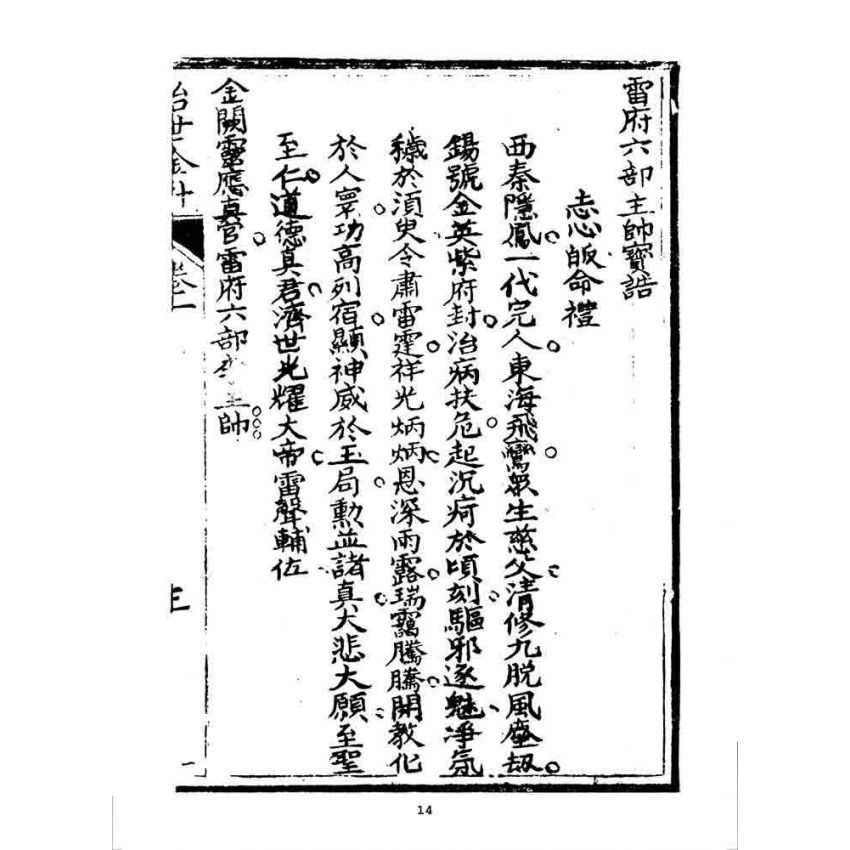 雷府六部主帥寶誥
志心皈命禮
西秦隱鳳一代完人東海飛鸞羣生慈父清修九脫風塵劫
錫號金英紫府封治病扶危起沉疴於頃刻驅邪逐魅淨氛
穢於須臾令肅雷霆祥光炳炳恩深雨露瑞靄騰騰開教化
於人寰功高列宿顯神威於玉局勳並諸真大悲大願至聖
至仁道德真君濟世光耀大帝雷聲輔佐
金闕靈應真官雷府六部主帥
治世金針
卷一
14